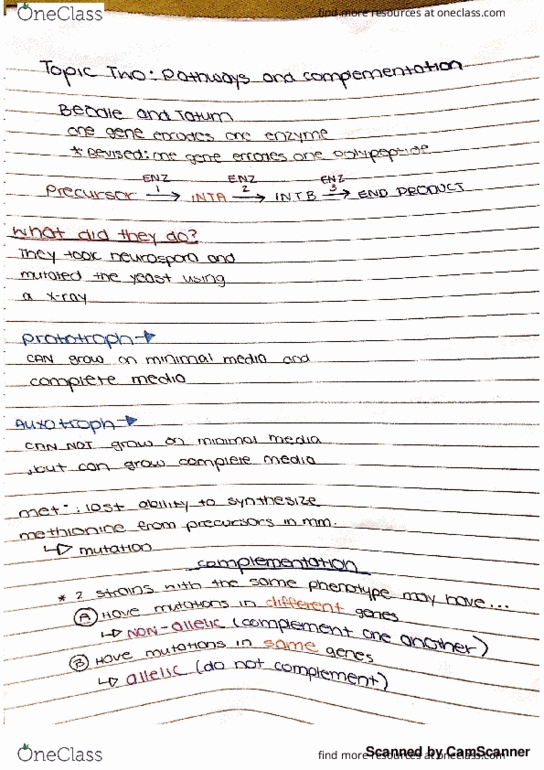 OneClass
find more resources at oneclass.com
Topic Two: Pathways and complementation
Beadle and Tatum
one gene encodes one enzyme
* Revised: one gene encodes one polypeptide
ENZ ENZ ENZ
Precursor 1 → INTA 2 → INTB 3 → END PRODUCT
What did they do?
They took neurospora and
mutated the yeast using
a x-ray
prototroph→
CAN grow on minimal media and
complete media
Auxotroph→
CAN NOT grow on minimal media
,but can grow complete media
met-: lost ability to synthesize
methionine from precursors in mm.
↳ mutation
complementation
* 2 strains with the same phenotype may have...
A Have mutations in different genes
↳ NON-allelic (complement one another)
B Have mutations in same genes
↳ allelic (do not complement)
OneClass
find more resources at oneclass.com
Scanned by CamScanner